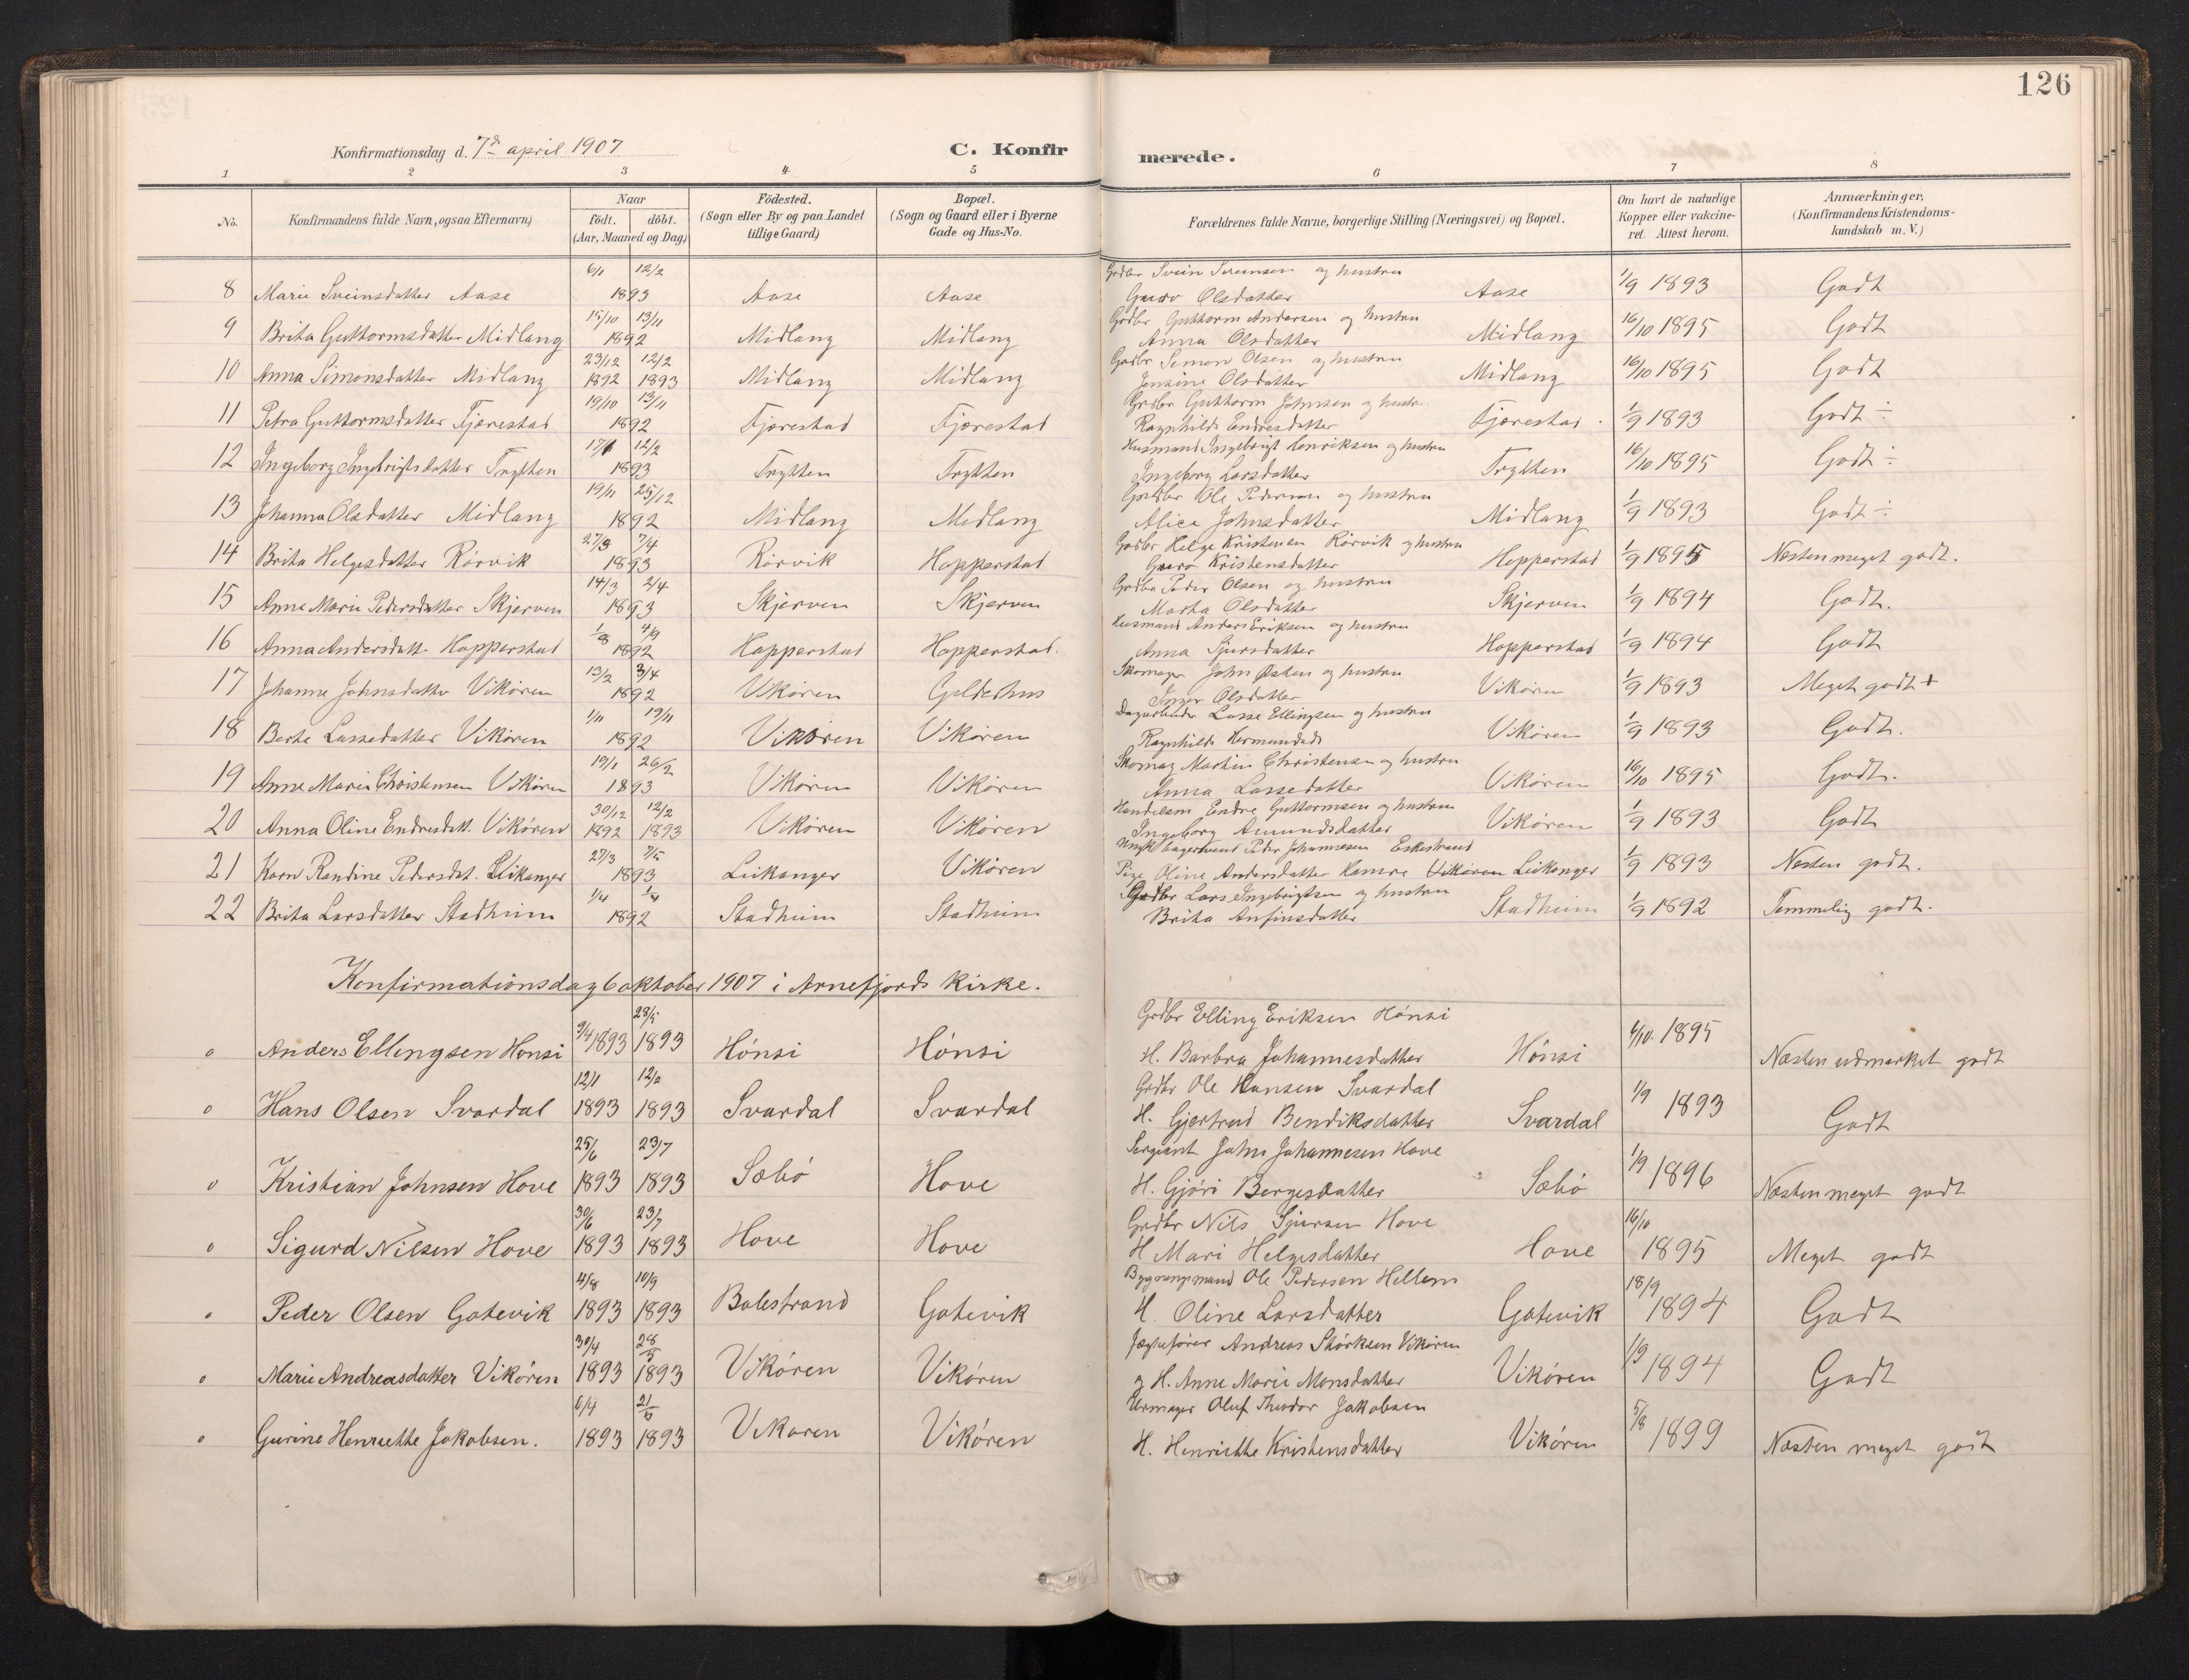 126
Konfirmationsdag d. 7de april 1907
C. Konfirmerede.
1 2 3 4 5 6 7 8
No. Konfirmandens fulde Navn, ogsaa Efternavn) Naar født. døbt. (Aar, Maaned og Dag) Födested. (Sogn eller By og paa Landet tillige Gaard) Bopæl. (Sogn og Gaard eller i Byerne Gade og Hus-No. Forældrenes fulde Navne, borgerlige Stilling (Næringsvei) og Bopæl. Om havt de naturlige Kopper eller vakcineret. Attest herom. Anmærkninger. (Konfirmandens Kristendomskundskab m. V.)
8 Marie Sveinsdatter Aase 6/1 12/2 1893 Aase Aase Grdbr Svein Simensen og hustru Guro Olsdatter Aase 1/9 1893 Godt
9 Brita Guttormsdatter Midlang 15/10 13/11 1892 Midlang Midlang Grdbr Guttorm Andersen og hustru Anna Olsdatter Midlang 16/10 1895 Godt
10 Anna Simonsdatter Midlang 23/12 1892 12/2 1893 Midlang Midlang Grdbr Simon Olsen og hustru Jensine Olsdatter Midlang 16/10 1895 Godt
11 Petra Guttormsdatter Fjærestad 19/10 13/11 1892 Fjærestad Fjærestad Grdbr Guttorm Johnsen og hustr. Ragnhild Endresdatter Fjærestad. 1/9 1893 Godt ÷
12 Ingeborg Ingebrigtsdatter Trytten 17/1 12/2 1893 Trytten Trytten Husmand Ingebrigt Henriksen og hustru Ingeborg Larsdatter Trytten 16/10 1895 Godt ÷
13 Johanna Olsdatter Midlang 19/11 25/12 1892 Midlang Midlang Grdbr Ole Pedersen og hustru Alice Johnsdatter Midlang 1/9 1893 Godt ÷
14 Brita Helgesdatter Rørvik 27/3 7/4 1893 Rørvik Hopperstad Grdbr Helge Kristensen Rørvik og hustru Guro Kristensdatter Hopperstad 1/9 1895 Næsten meget godt.
15 Anne Marie Pedersdatter Skjerven 14/3 2/4 1893 Skjerven Skjerven Grdbr Peder Olsen og hustru Marta Olsdatter Skjerven 1/9 1894 Godt.
16 Anna Andersdatt. Hopperstad 1/8 4/9 1892 Hopperstad Hopperstad. Husmand Anders Eriksen og hustru Anna Sjursdatter Hopperstad 1/9 1894 Godt
17 Johanne Johnsdatter Vikøren 13/2 3/4 1892 Vikøren Gyldehus Skomager John Østen og hustru Inger Olsdatter Vikøren 1/9 1893 Meget godt +
18 Berte Lassedatter Vikøren 1/11 13/11 1892 Vikøren Vikøren Dagarbeider Lasse Ellingsen og hustru Ragnhild Hermundsd Vikøren 1/9 1893 Godt.
19 Anne Marie Christensen Vikøren 19/1 26/2 1893 Vikøren Vikøren Skomag Martin Christensen og hustru Anna Lassedatter Vikøren 16/10 1895 Godt.
20 Anna Oline Endresdatt. Vikøren 30/12 1892 12/2 1893 Vikøren Vikøren Handelsm Endre Guttormsen og hustru Ingeborg Amundsdatter Vikøren 1/9 1893 Godt
21 Karn Randine Pedersdat. Leikanger 27/3 7/5 1893 Leikanger Vikøren Ungk bagersvend Peder Johannesen Eskestrand Pige Oline Andersdatter Hamre Vikøren Leikanger 1/9 1893 Næsten godt.
22 Brita Larsdatter Stadheim 1/4 1/4 1892 Stadheim Stadheim Grdbr Lars Ingebrigtsen og hustru Brita Anfinsdatter Stadheim 1/9 1892 Temmelig godt.
Konfirmationsdag 6 oktober 1907 i Arnefjords kirke.
o Anders Ellingsen Hønsi 9/4 1893 28/5 1893 Hønsi Hønsi Grdbr Elling Eriksen Hønsi H. Barbra Johannesdatter Hønsi 6/10 1895 Næsten udmærket godt
o Hans Olsen Svardal 12/1 1893 12/2 1893 Svardal Svardal Grdbr Ole Hansen Svardal H. Gjertrud Bendiksdatter Svardal 1/9 1893 Godt
o Kristian Johnsen Hove 25/6 1893 23/7 1893 Sæbø Hove Sergeant John Johannesen Hove H. Gjøri Børgesdatter Sæbø 1/9 1896 Næsten meget godt
o Sigurd Nilsen Hove 30/6 1893 23/7 1893 Hove Hove Grdbr Nils Sjursen Hove H Mari Helgesdatter Hove 16/10 1895 Meget godt
o Peder Olsen Gotevik 4/8 1893 10/9 1893 Balestrand Gotevik Bygningsmand Ole Pedersen Hellem H. Oline Larsdatter Gotevik 18/9 1894 Godt
o Marie Andreasdatter Vikøren 30/4 1893 28/5 1893 Vikøren Vikøren Jægtefører Andreas Størksen Vikøren og H. Anne Marie Monsdatter Vikøren 1/9 1894 Godt
o Gurine Henriette Jakobsen. 6/4 1893 21/5 1893 Vikøren Vikøren Urmager Oluf Theodor Jakobsen H. Henriette Kristensdatter Vikøren 5/8 1899 Næsten meget godt